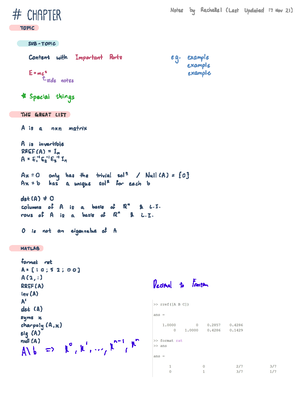 # CHAPTER
Notes by Rachelle! (Last Updated 19 Nov 21)
TOPIC
SUB-TOPIC
Content with Important Parts
E=mc²
side notes
* Special things
eg. example
example
example
THE GREAT LIST
A is a nxn matrix
A is invertible
RREF(A) = In
Ax = 0 only has the trivial solⁿ / Null (A) = {0}
Ax = b has a unique solⁿ for each b
det (A) ≠ 0
columns of A is a basis of Rⁿ & L.I.
rows of A is a basis of Rⁿ & L.I.
0 is not an eigenvalue of A
MATLAB
format rat
A(2,:)
RREF(A)
inv(A)
A'
det (A)
syms x
charpoly(A,x)
eig (A)
null(A)
A\b ⇒ R⁰, R¹, ..., Rⁿ⁻¹, Rⁿ
Decimal to
ans =
1.0000 0 0.2857 0.4286
0 1.0000 0.4286 0.1429
>> format rat
>> ans
ans =
1 0 2/7 3/7
0 1 3/7 1/7